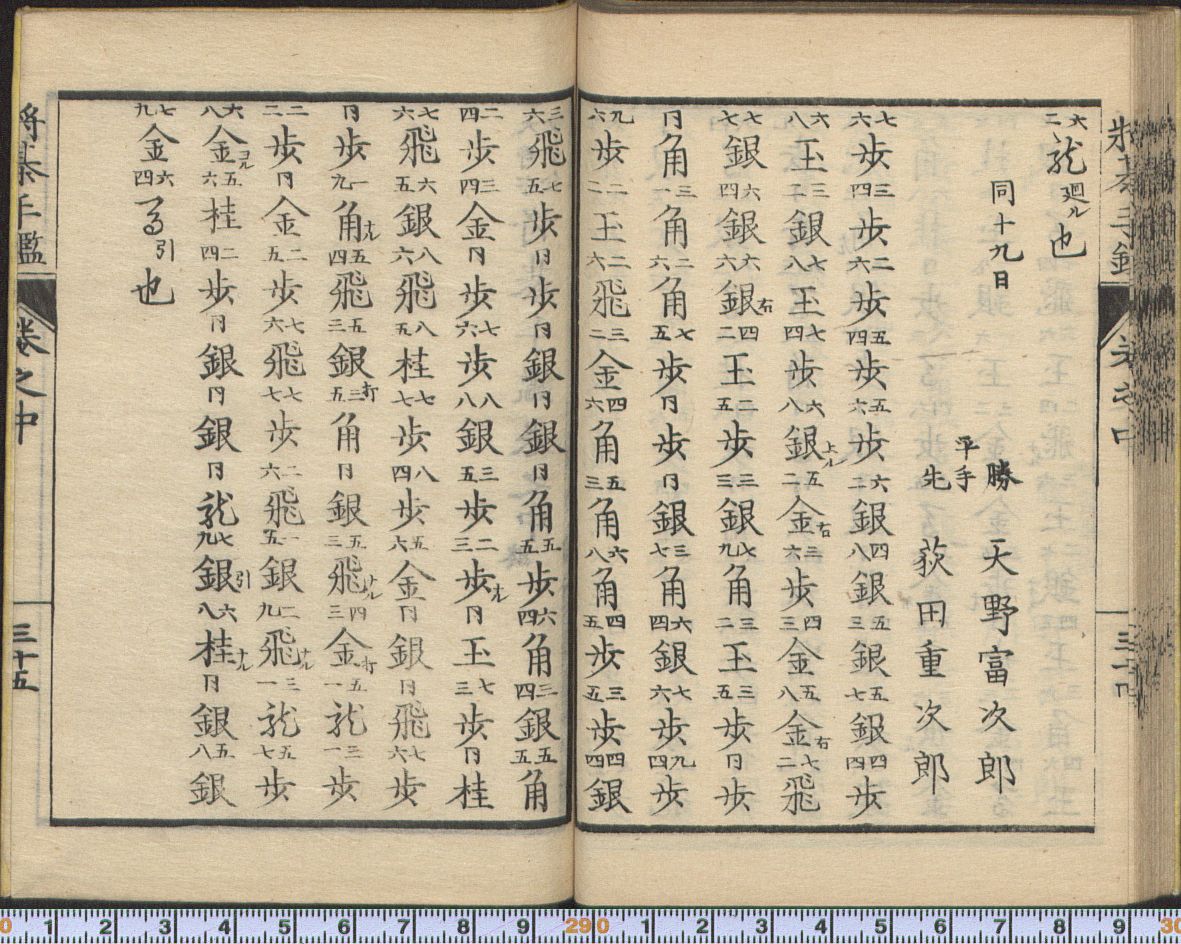 六二龍廻ル也
同十九日　勝　天野富次郎
平手　先　荻田重次郎
七六歩三四歩二六歩五四歩五六歩六二銀四八銀五三銀五七銀四四歩
六八玉三二銀七八玉七四歩六八銀上ル五二金右三六歩四三金五八金右七二飛
七七銀六四銀六六銀右四二玉二五歩三三銀七九角三二玉三五歩同歩
同角三一角二六角七五歩同歩同銀三七角六四銀七六歩九四歩
九六歩二二玉二六飛三二金四六角五三角六八角四五歩三五歩四四銀
三六飛七五歩同歩同銀同銀同角五五歩六四角三四銀五五角
二四歩三四金同歩七六歩八八銀三五歩二三歩ナル同玉七三歩同桂
七六飛六五銀八六飛八五桂七七歩八四歩五六金同銀同飛七六歩
同歩一九角ナル五四飛五三銀打三五角同銀五三飛ナル四三金打五一龍三一歩
二二歩同金二五歩七六飛七七歩二六飛一五銀二九飛ナル三一龍五七歩
六八金ヨル五六桂二四歩同銀同銀同龍七九銀引六八桂ナル同銀五八銀
七九金六四馬引也
将棊手鑑　巻之中　三十五